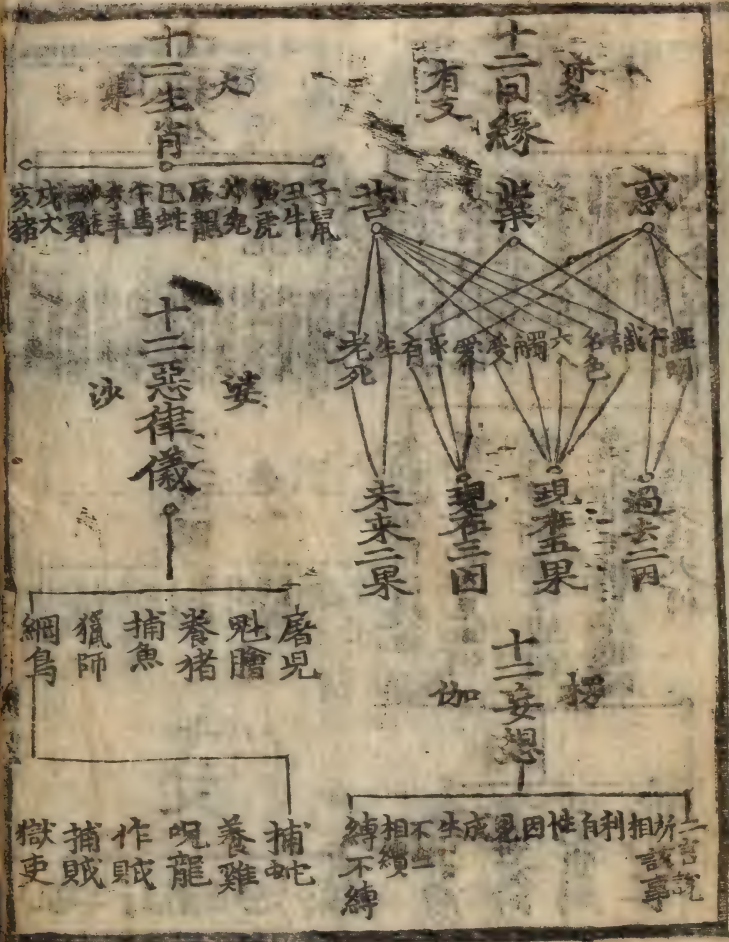 十二因緣
亦名
有支
惑
業
苦
無明
行
識
名色
六入
觸
受
愛
取
有
生
老死
過去二因
現在五果
現在三因
未来二果
十二妄想
楞
伽
言說
所說事
相
利
自性
因
見
成
生
不生
相續
縛不縛
十二生肖
大
集
子鼠
丑牛
寅虎
卯兔
辰龍
巳蛇
午馬
未羊
申猴
酉雞
戌犬
亥猪
十二惡律儀
婆
沙
屠児
魁膾
養猪
捕魚
獵師
網鳥
捕蛇
養雞
呪龍
作賊
捕賊
獄吏